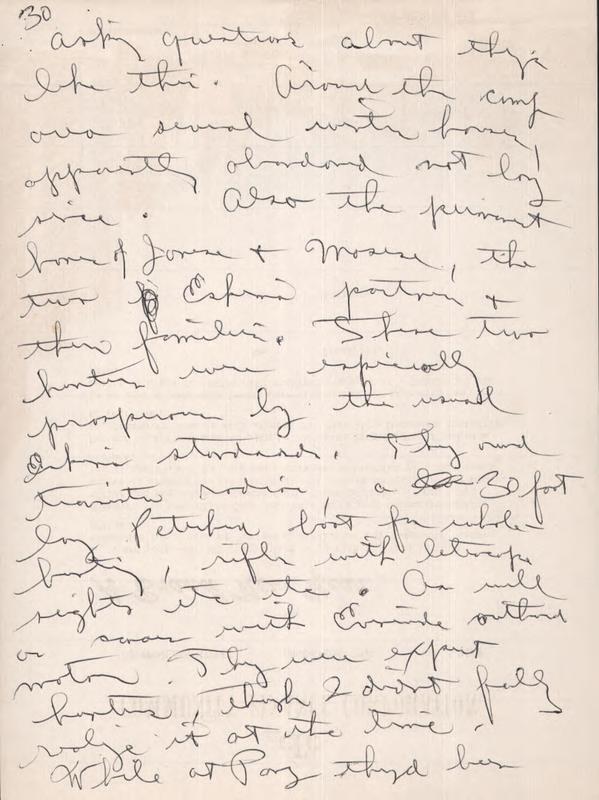 30
asking questions about things
like this. Around the camp
area several winter houses,
apparently abandoned not long
since. Also the permanent
homes of Jonese & Mosese, the
two Eskimo partners &
their families. These two
hunters were especially
prosperous by the usual
Eskimo standards. They owned
transistor radios, a 30 foot
long Peterhead boat for whale
hunting, rifles with telescope
sights etc etc. As well
as canoes with Evinrude outboard
motors. They were expert
hunters, though I didn't fully
realize it at the time.
While at Pang they'd been